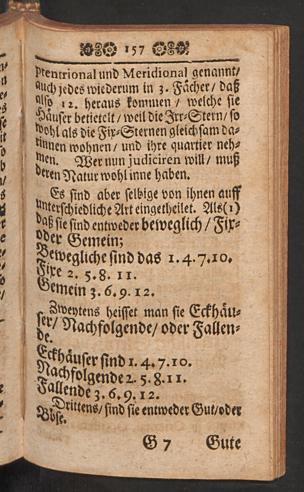 157
ptentrional und Meridional genannt/
auch jedes wiederum in 3. Fächer/ daß
also 12. heraus kommen / welche sie
Häuser betietelt / weil die Irr-Stern/ so
wohl als die Fix-Sternen gleichsam da-
rinnen wohnen / und ihre quartier neh-
men. Wer nun judiciren will / muß
deren Natur wohl inne haben.
Es sind aber selbige von ihnen auff
unterschiedliche Art eingetheilet. Als (1)
daß sie sind entweder beweglich / Fix-
oder Gemein;
Bewegliche sind das 1. 4. 7. 10.
Fixe 2. 5. 8. 11.
Gemein 3. 6. 9. 12.
Zweytens heisset man sie Eckhäu-
ser/ Nachfolgende/ oder Fallen-
de.
Eckhäuser sind 1. 4. 7. 10.
Nachfolgende 2. 5. 8. 11.
Fallende 3. 6. 9. 12.
Drittens/ sind sie entweder Gut/oder
Böse.
G 7 Gute